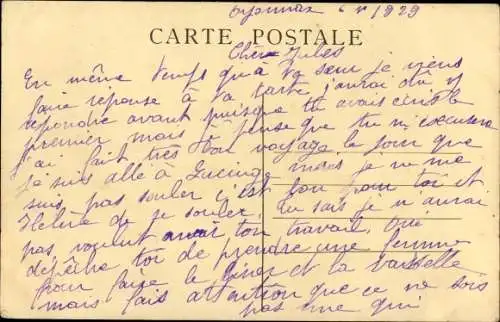 Oyonnax 6 1929
CARTE POSTALE
Chère Jules
En même temps qu'à ta sœur je viens
faire réponse à ta carte j'aurai dû y
repondre avant puisque tu avais écris le
premier mais je pense que tu m'excusera
j'ai fait très bon voyage le jour que
je suis allé à Lucinge mais je ne me
suis pas souler c'est bon pour toi et
Helène de je souler. tu sais je n'aurai
pas voulut avoir ton travail.
dépêche toi de prendre une femme
pour faire le diner et la vaisselle
mais fais attention que ce ne sois
pas une qui